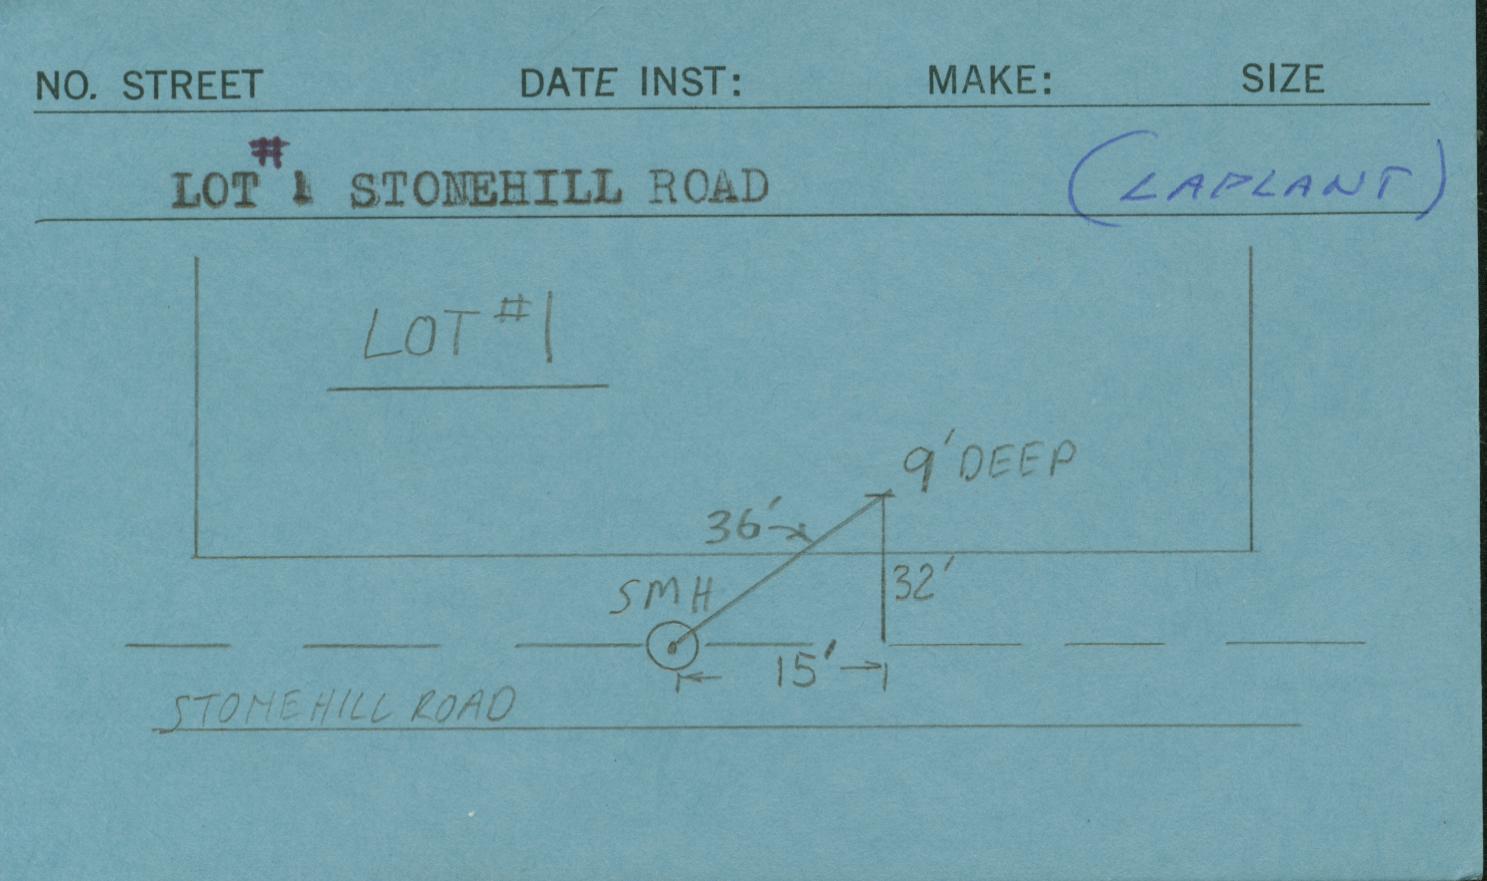 NO. STREET DATE INST: MAKE: SIZE
LOT #1 STONEHILL ROAD (LAPLANT)
LOT #1
9' DEEP
36'
32'
SMH
15'
STONEHILL ROAD